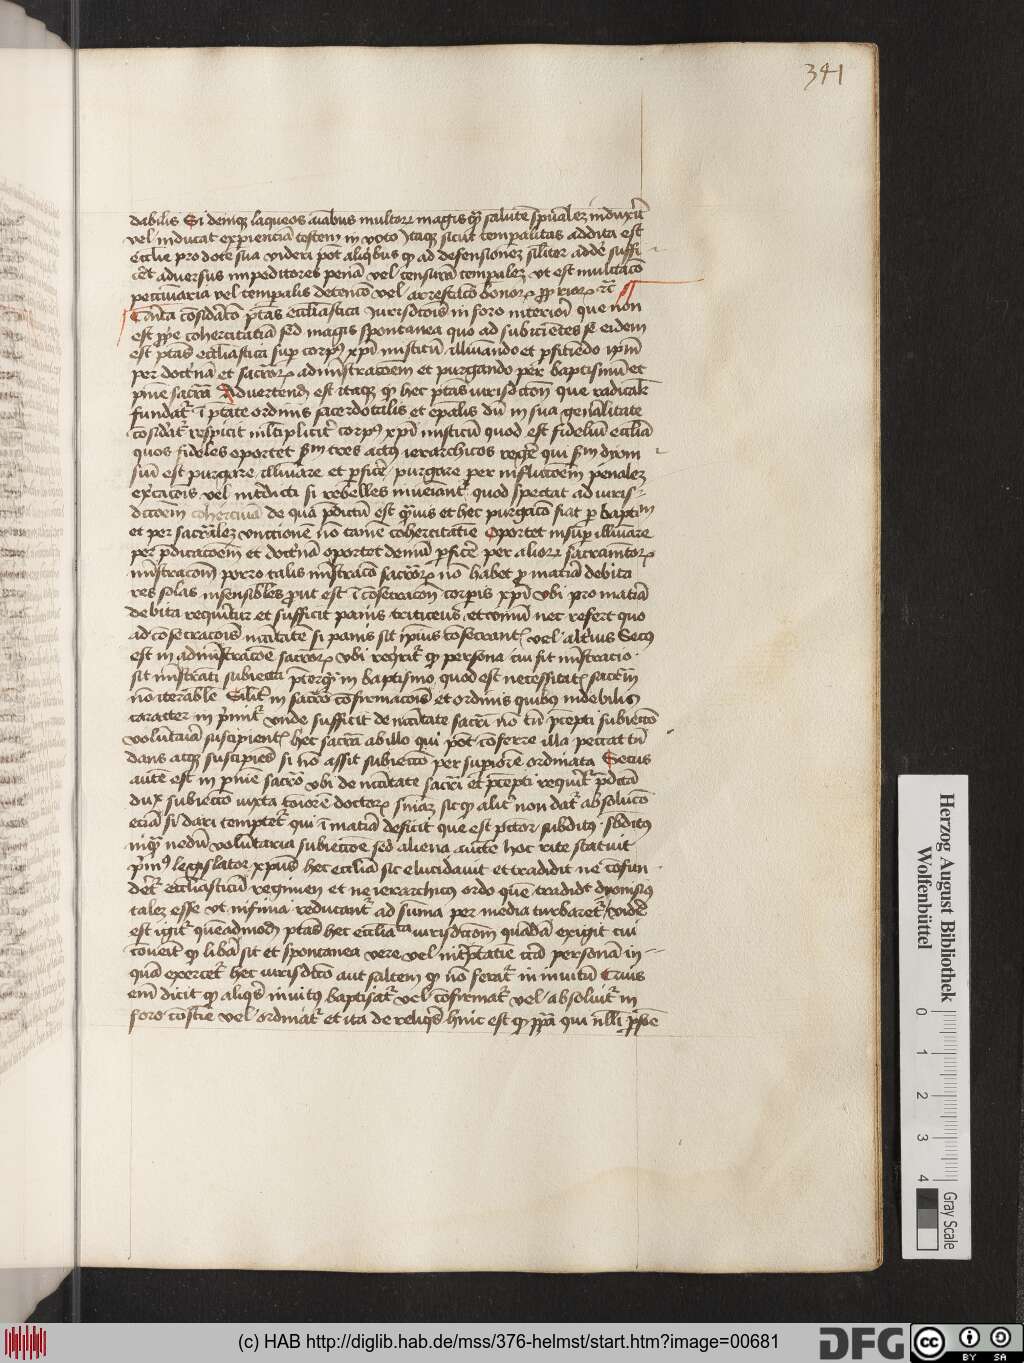 341
dabilis Si deniqz laqueos aiabus multorz magis qz salute spualez induxit
vel inducat experiencia teste in voto Itaqz sicut temporalitas addita est
Ecclie pro dote sua videri pot aliqbus qz ad defensionez siliter adde suffi
cet adversus impeditores pena vel censura temporalez ut est multaco
pecuniaria vel temporalis detenco vel arrestaco bonorz
Quita cosidaco ptas ecclesiastica iurisdcois in foro interiori que non
est cohercitatia sed magis spontanea quo ad subicientes se eidem
est ptas ecclesiastica sup corpus xpi misticu illuminando et pficiendo ipm
per doctrina et sacrorz administracoem et purgando per baptismu et
pnie sacrm Advertendu est itaqz qz hec ptas iurisdictonis que radicalr
fundatr i ptate ordinis sacerdotalis et epalis du in sua generalitate
cosidatr respicit mltiplicitr corpus xpi misticu quod est fideliu ecclia
quos fideles oportet sm tres actus ierarchicos regere qui sm dyoni
siu est purgare illuminare et pficere purgare per inflictoem penalez
excacois vel interdicti si rebelles inveniantr quod spectat ad iuris
dictoem coherciva de qua pdictu est qvis et hec purgaco fiat p baptm
et per sacralez unctione no tame cohercitatie Oportet insup illuminare
per pdicacoem et doctrina oportet demu pficere per aliorz sacramentorz
ministracom porro talis ministraco sacrorz no habet p materia debita
res solas insensibiles prout est i cosecracon corporis xpi ubi pro materia
debita requiritur et sufficit panis triticeus et vinum nec refert quo
ad cosecracois necitate si panis sit ipius cosecrantis vel alterius Secus
est in administracoe sacrorz ubi requirit qz persona cui fit ministracio
sit ministranti subiecta pterqz in baptismo quod est necessitatis sacrm
no iterabile Silitr in sacro confirmacois et ordinis quibus indebilis
caracter inprimitr unde sufficit de necitate sacri no tn precepti subiecto
voluntaria suscipientis hec sacra ab illo qui pot conferre illa peccat tn
dans atqz suscipiens si no assit subiecto per supiore ordinata Secus
aute est in pnie sacro ubi de necitate sacri et pcepti requiritr pdcta
dux subiecto iuxta coiore doctorz sniaz sic qz alitr non datr absoluco
ecia si dari temptetr qui i materia deficit que est pctor subditus
inqz nedu voluntaria subiectoe sed aliena aute hoc rite statuit
primus legislator xpus hec ecclia sic elucidavit et tradidit ne cofun
detr ecclesiasticu regimen et ne ierarchicus ordo que tradidit dyonisius
talez esse ut infima reducantr ad suma per media turbaretr videre
est igitr queadmodu ptas hec ecclesiastica iurisdictom quada exigit cui
convenit qz libera sit et spontanea vere vel interptatie circa persona in
qua exercetr hec iurisdicto aut saltem qz no feratr in invitu Quis
em dicit qz aliqs invitus baptisatr vel cofirmatr vel absolvitr in
foro coscie vel ordinatr et ita de reliqs hinc est qz papa qui nlli psone
Herzog August Bibliothek
Wolfenbüttel
0 1 2 3 4
Gray Scale
(c) HAB http://diglib.hab.de/mss/376-helmst/start.htm?image=00681
DFG
cc BY SA